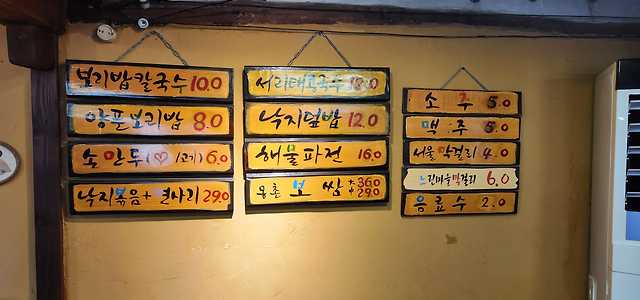 보리밥칼국수 10.0
양푼보리밥 8.0
손만두(♡/고기) 6.0
낙지볶음+면사리 29.0
서리태콩국수 13.0
낙지덮밥 12.0
해물파전 16.0
보쌈 36.0
29.0
소주 5.0
맥주 5.0
서울막걸리 4.0
느린마을막걸리 6.0
음료수 2.0